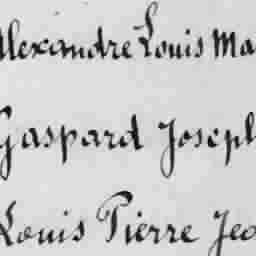 Alexandre Louis Ma
Gaspard Joseph
Louis Pierre Jea